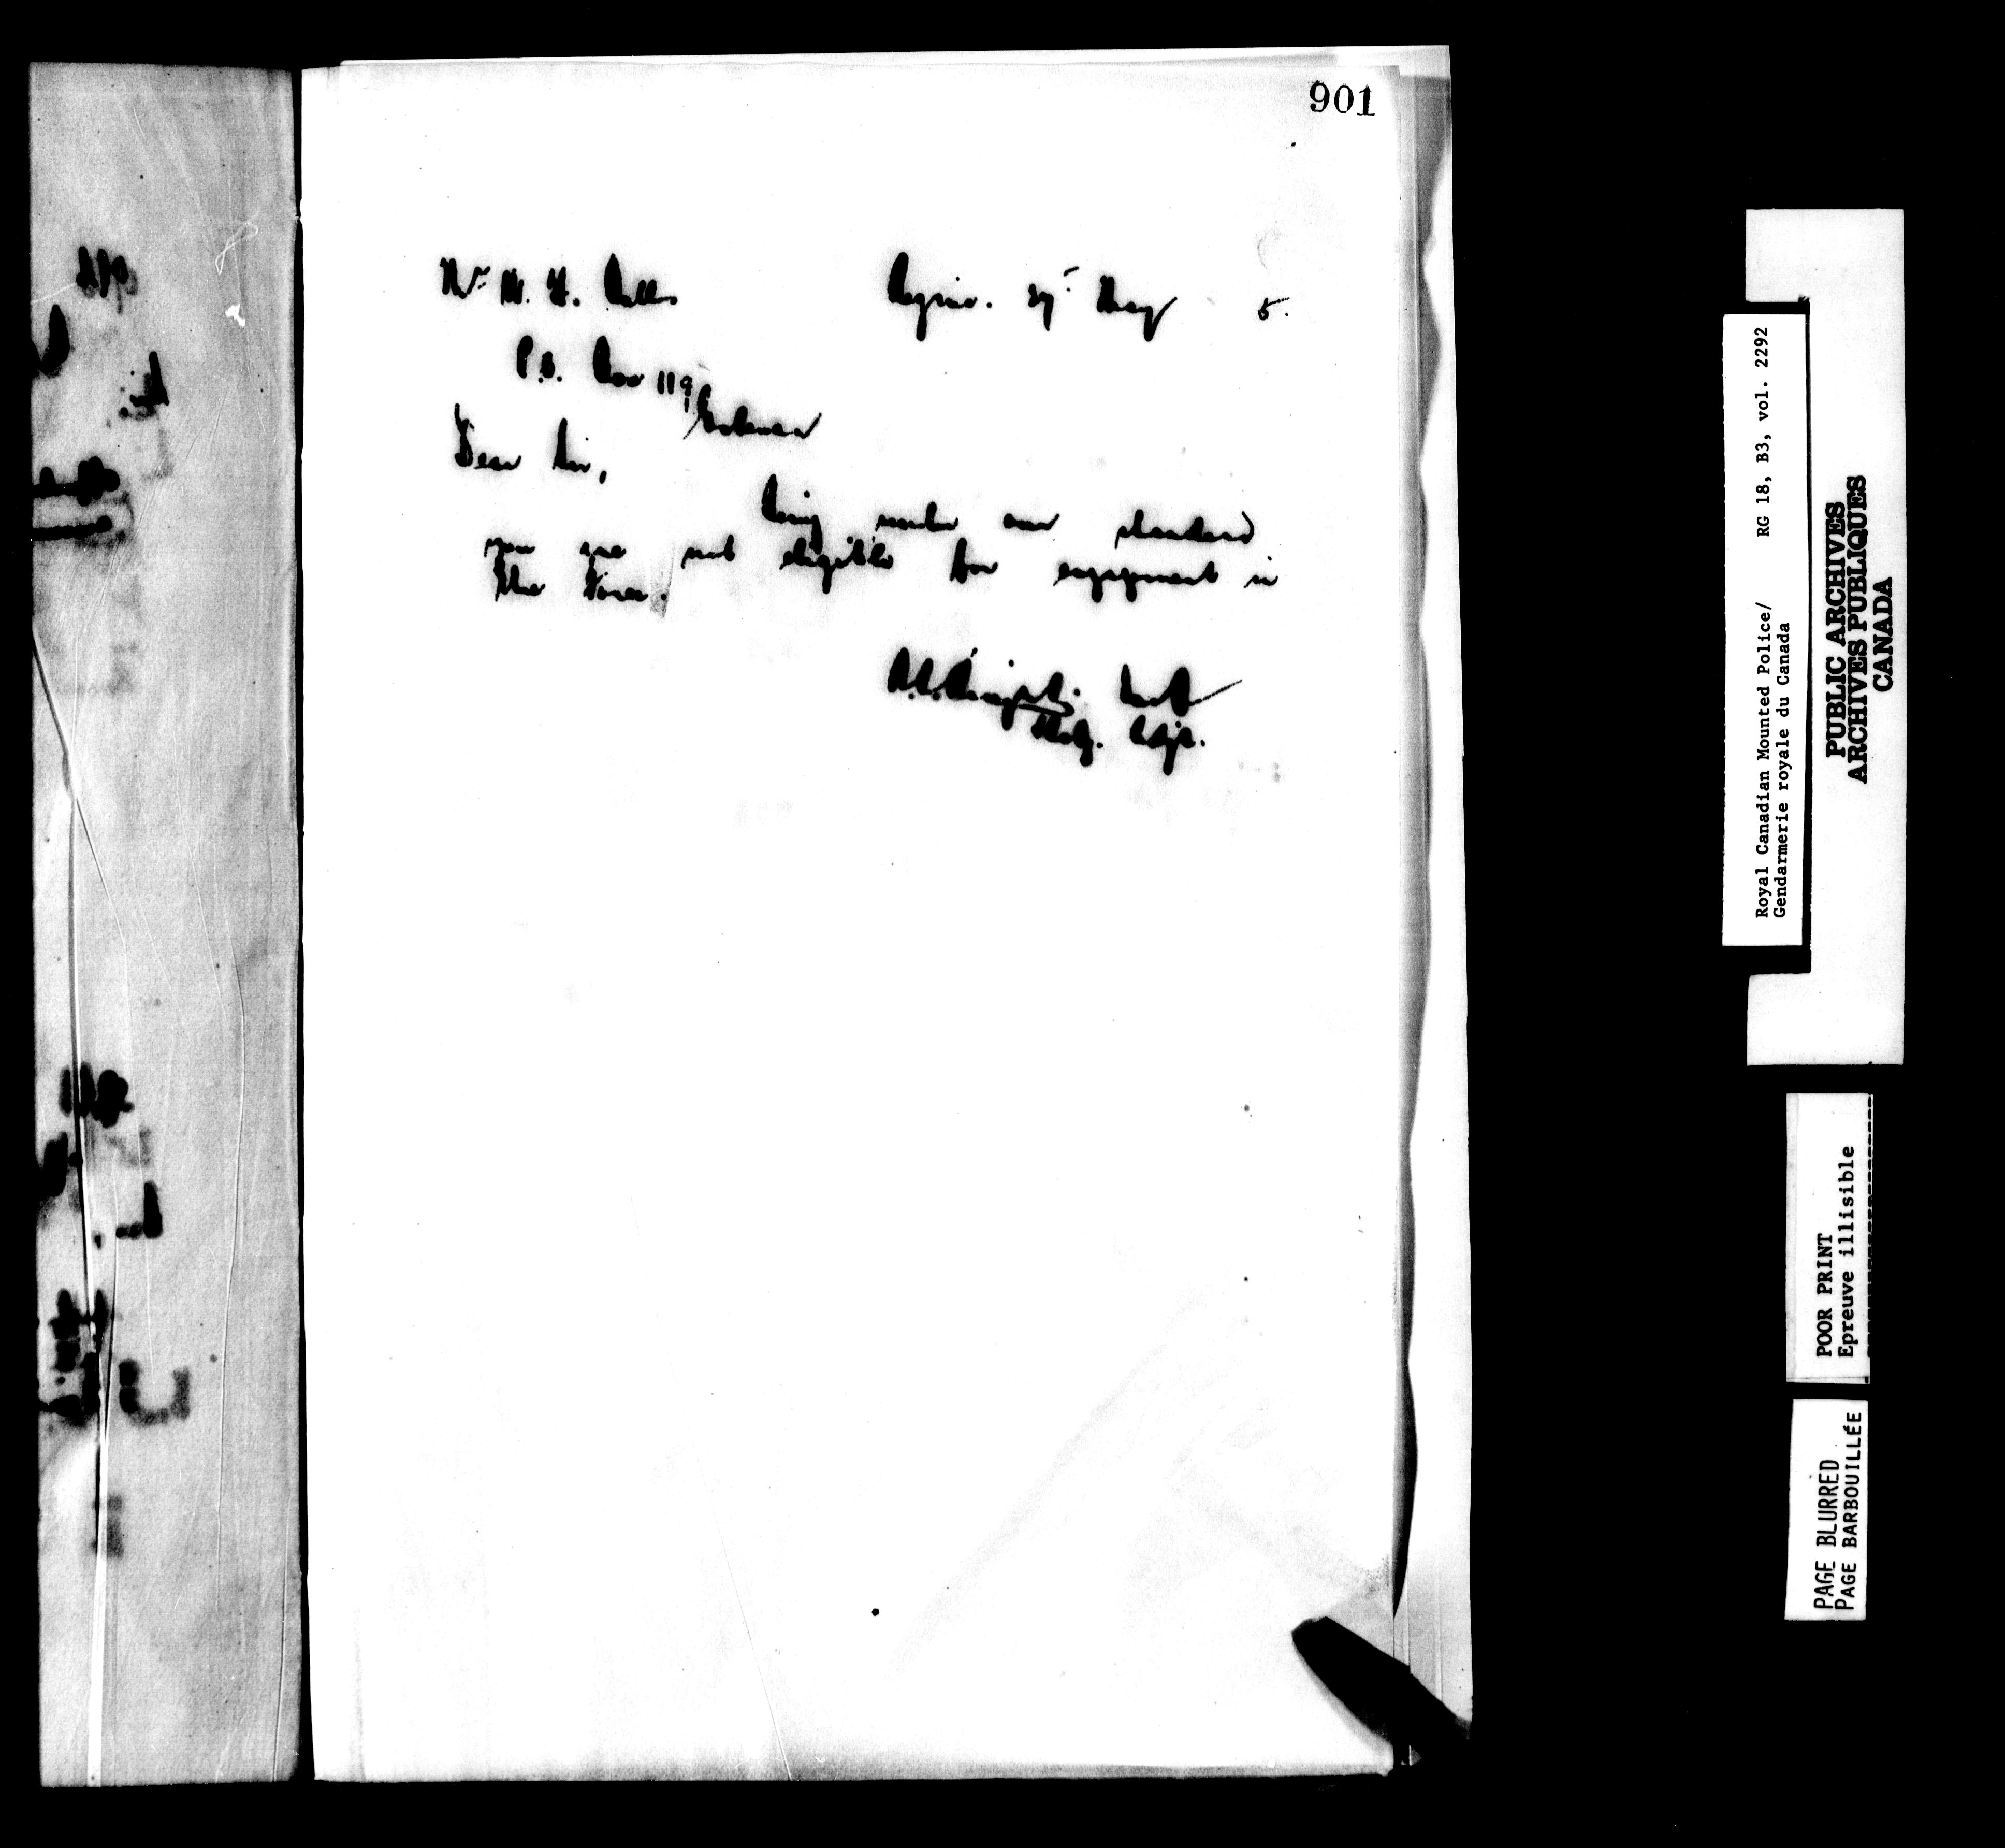 901
Mr. H.
Regina. 29th May 5.
P.O. Box 119
Dear Sir,
Being under our standard
you are not eligible for engagement in
the Force.
Supt
Actg. Adjt.
Royal Canadian Mounted Police/ RG 18, B3, vol. 2292
Gendarmerie royale du Canada
PUBLIC ARCHIVES
ARCHIVES PUBLIQUES
CANADA
POOR PRINT
Epreuve illisible
PAGE BLURRED
PAGE BARBOUILLÉE